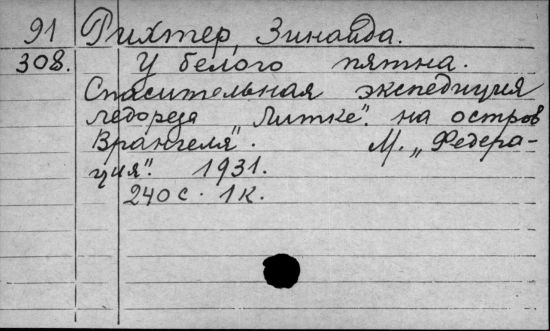 91 Рихтер, Зинаида.
308. У белого пятна.
Спасительная экспедиция
ледореза „Литке". на остров
Врангеля". М. „Федера-
ция". 1931.
240 с. 1 к.